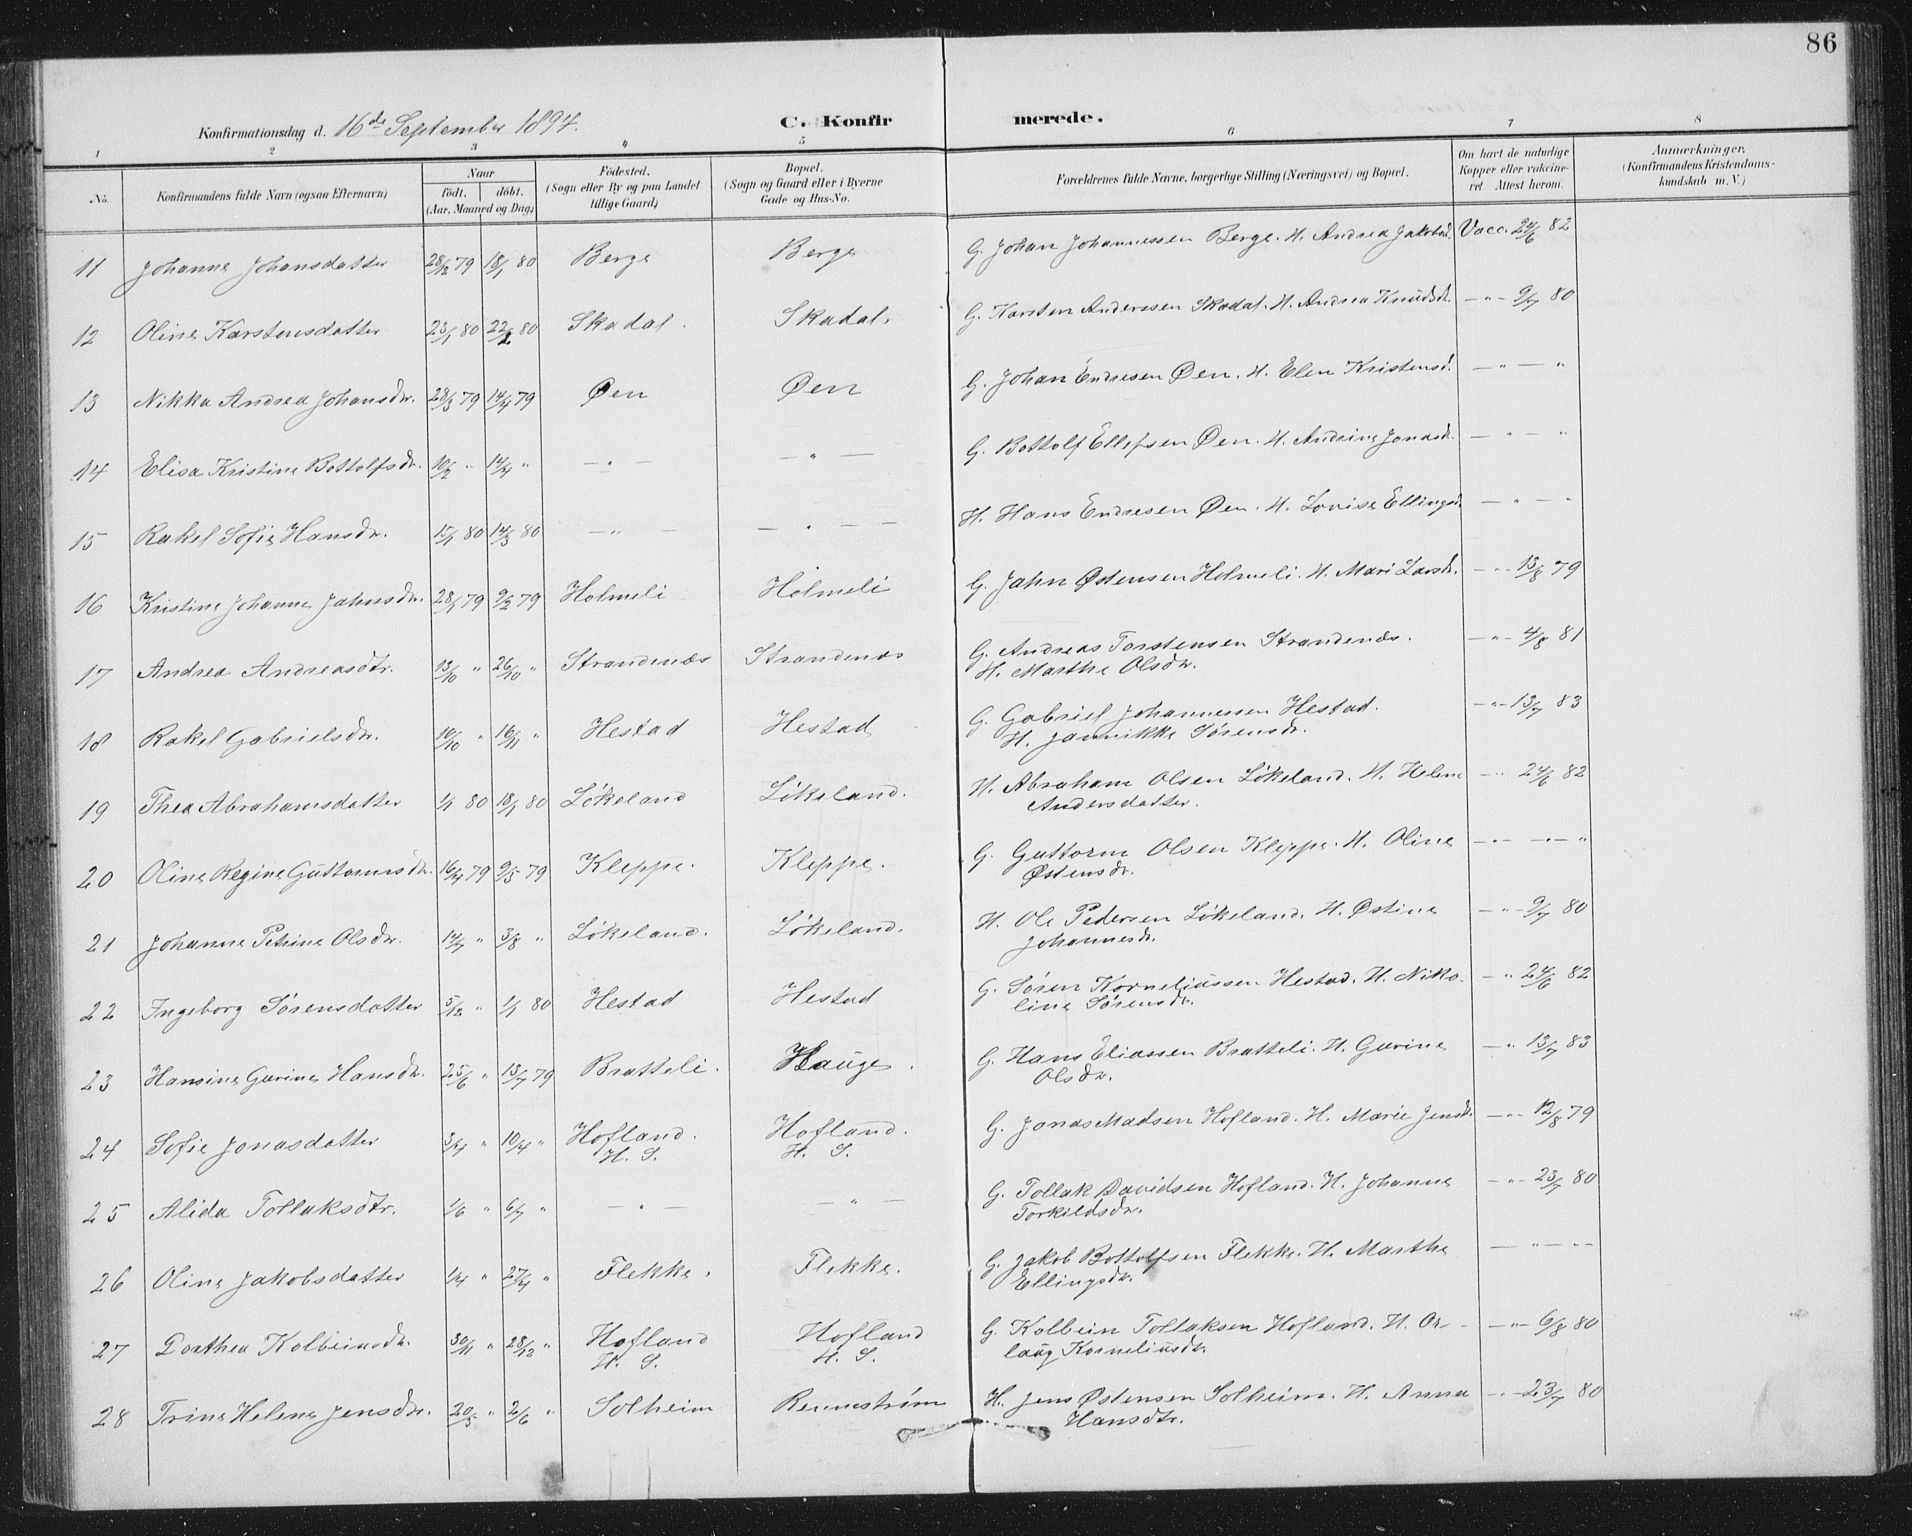 86
Konfirmationsdag d. 16de September 1894.
C. Konfirmerede.
1 2 3 4 5 6 7 8
No.
Konfirmandens fulde Navn (ogsaa Efternavn)
Naar
födt. döbt.
(Aar, Maaned og Dag)
Födested.
(Sogn eller By og paa Landet
tillige Gaard)
Bopæl.
(Sogn og Gaard eller i Byerne
Gade og Hus-No.
Forældrenes fulde Navne, borgerlige Stilling (Næringsvei) og Bopæl.
Om havt de naturlige
Kopper eller vakcine-
ret Attest herom.
Anmærkninger.
(Konfirmandens Kristendoms-
kundskab m. V.)
11 Johanne Johansdatter 28/12 79 18/1 80 Berge Berge G. Johan Johannessen Berge. H. Andrea Jakobsd. Vacc. 24/6 82
12 Oline Karstensdatter 23/1 80 22/2 80 Skadal. Skadal. G. Karsten Anderssen Skadal. H. Andrea Knudsdr. — " — 9/7 80
13 Nikka Andrea Johansdr. 28/3 79 14/4 79 Øen Øen G. Johan Endresen Øen. H. Elen Kristensd. — " — "
14 Elisa Kristine Bottolfsdr. 10/2 " 14/4 " — " — — " — G. Bottolf Ellefsen Øen. H. Andrine Jonasdr. — " — "
15 Rakel Sofie Hansdr. 15/1 80 14/3 80 — " — — " — — H. Hans Endresen Øen. H. Lovise Ellingsd. — " — "
16 Kristine Johanne Jahnsdr. 28/1 79 9/2 79 Holmeli Holmeli G. Jahn Østensen Holmeli. H. Mari Larsdr. — " — 13/8 79
17 Andrea Andreasdtr. 13/10 " 26/10 " Strandenæs Strandenæs G. Andreas Torstensen Strandenæs.
H. Marthe Olsdr. — " — 4/8 81
18 Rakel Gabrielsdr. 10/10 " 16/11 " Hestad Hestad G. Gabriel Johannessen Hestad.
H. Jannikke Sørensdr. — " — 13/7 83
19 Thea Abrahamsdatter 1/1 80 18/1 80 Løkeland Løkeland. H. Abraham Olsen Løkeland. H. Helene
Andersdatter. — " 24/6 82
20 Oline Regine Guttormsdr. 16/4 79 9/5 79 Kleppe. Kleppe. G. Guttorm Olsen Kleppe. H. Oline
Østensdr. — " — — " — "
21 Johanne Petrine Olsdr. 14/7 " 3/8 " Løkeland. Løkeland. H. Ole Pedersen Løkeland. H. Østine
Johannesdr. — " — 9/7 80
22 Ingeborg Sørensdatter 5/12 " 1/1 80 Hestad Hestad G. Søren Korneliussen Hestad. H. Niko-
line Sørensdr. — " 24/6 82
23 Hansine Gurine Hansdr. 25/6 " 13/7 79 Bratteli. Hauge. G. Hans Eliassen Bratteli. H. Gurine
Olsdr. — " 13/7 83
24 Sofie Jonasdatter 3/4 " 10/4 " Hofland.
H. S. Hofland.
H. S. G. Jonas Madsen Hofland. H. Marie Jensdr. — " — 12/8 79
25 Alida Tollaksdtr. 1/6 " 6/7 " — " — — " — G. Tollak Davidsen Hofland. H. Johanne
Torkildsdr. — " — 23/7 80
26 Oline Jakobsdatter 1/4 " 27/4 " Flekke. Flekke. G. Jakob Bottolfsen Flekke. H. Marthe
Ellingsdr. — " — " —
27 Dorthea Kolbeinsdr. 30/11 " 28/12 " Hofland
H. S. Hofland
H. S. G. Kolbein Tollaksen Hofland. H. Or-
laug Korneliusdr. — " — 6/8 80
28 Trine Helene Jensdr. 20/5 " 2/6 " Solheim Rennestrøm H. Jens Østensen Solheim. H. Anna
Hansdtr. — " — 23/7 80